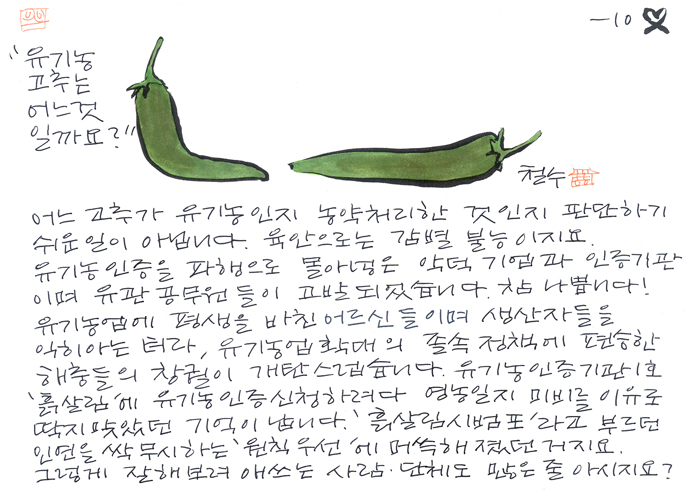 -10
"유기농
고추는
어느것
일까요?"
철수
어느 고추가 유기농인지 농약처리한 것인지 판단하기
쉬운일이 아닙니다. 육안으로는 감별 불능이지요.
유기농인증을 파행으로 몰아넣은 악덕 기업과 인증기관
이며 유관 공무원 들이 고발되었습니다. 참 나쁩니다!
유기농업에 평생을 바친 어르신들이며 생산자들을
익히아는 터라, 유기농업 확대의 졸속 정책에 편승한
해충들의 창궐이 개탄스럽습니다. 유기농인증기관1호
'흙살림'에 유기농인증신청하려다 영농일지 미비를 이유로
딱지맞았던 기억이 납니다. '흙살림시범포'라고 부르던
인연을 싹 무시하는 '원칙우선'에 머쓱해졌던 거지요.
그렇게 잘해보려 애쓰는 사람·단체도 많은 줄 아시지요?